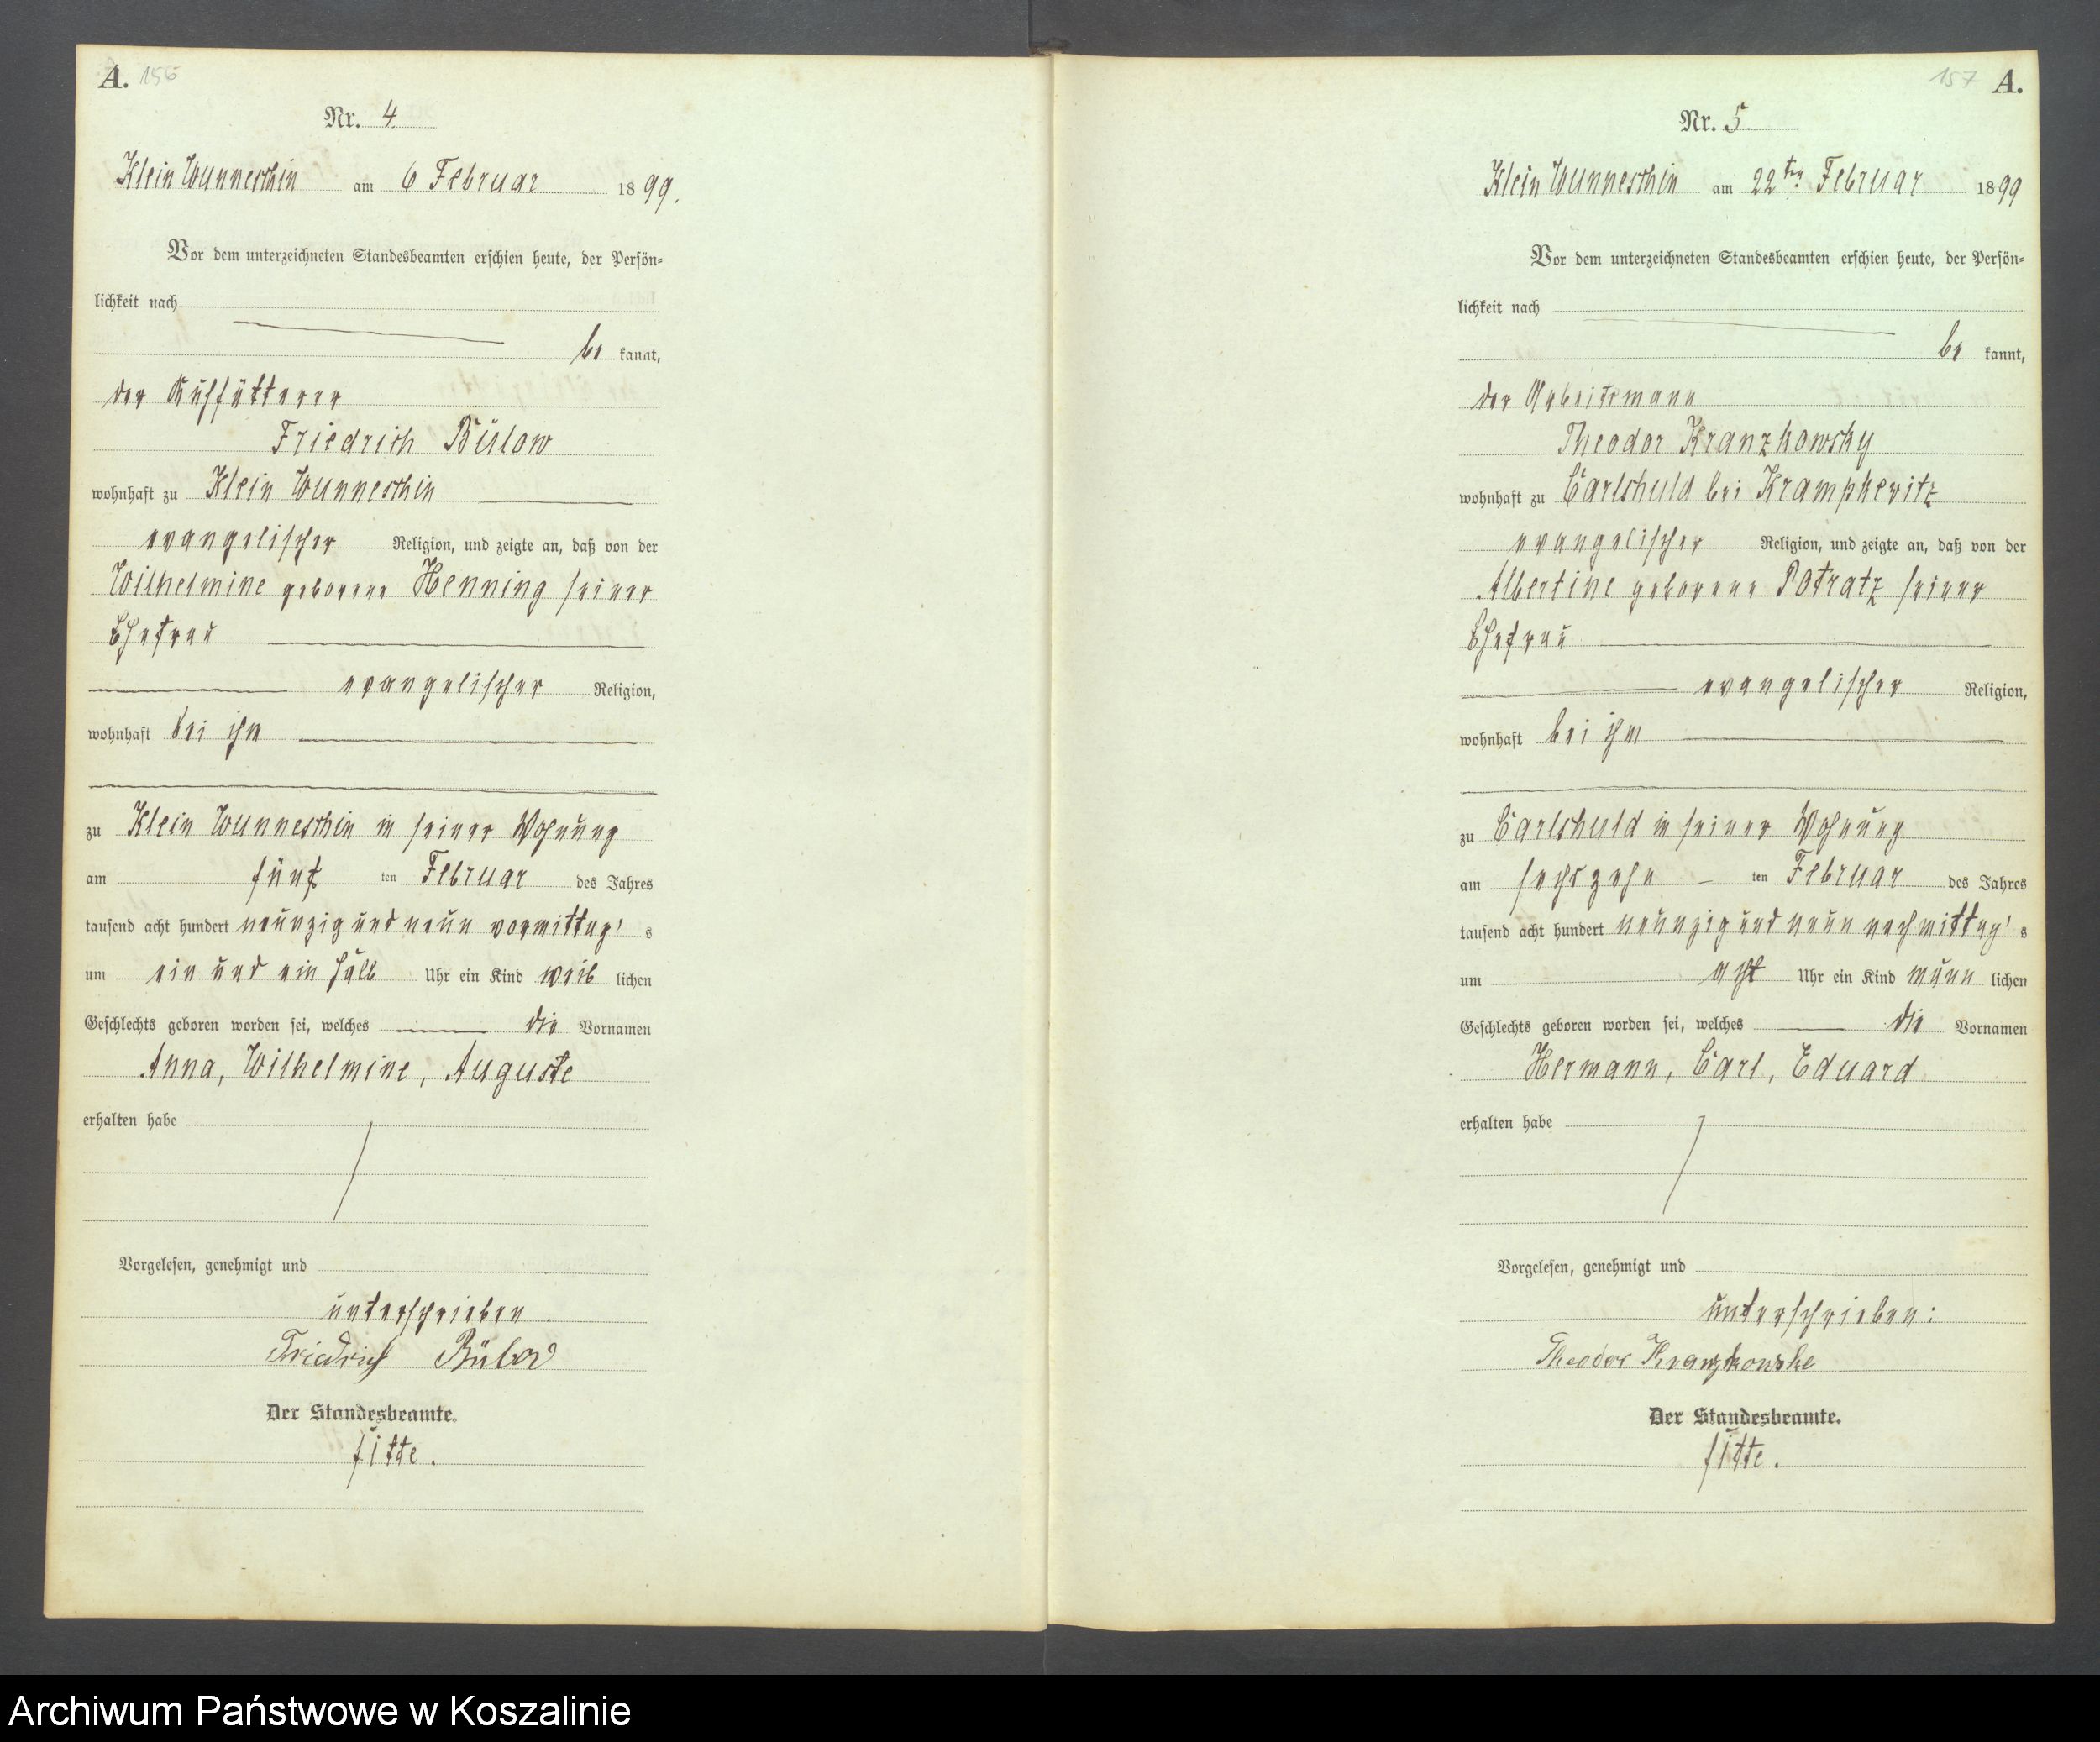 A. 156
Nr. 4
Klein Wunneschin am 6 Februar 1899.
Vor dem unterzeichneten Standesbeamten erschien heute, der Persön-
lichkeit nach
be kannt,
der Kuhfütterer
Friedrich Bülow
wohnhaft zu Klein Wunneschin
evangelischer Religion, und zeigte an, daß von der
Wilhelmine geborene Henning seiner
Ehefrau
evangelischer Religion,
wohnhaft bei ihm
zu Klein Wunneschin in seiner Wohnung
am fünf ten Februar des Jahres
tausend acht hundert neunzig und neun vormittag's
um ein und ein halb Uhr ein Kind weib lichen
Geschlechts geboren worden sei, welches die Vornamen
Anna, Wilhelmine, Auguste
erhalten habe
Vorgelesen, genehmigt und
unterschrieben.
Friedrich Bülow
Der Standesbeamte.
157 A.
Nr. 5
Klein Wunneschin am 22ten Februar 1899
Vor dem unterzeichneten Standesbeamten erschien heute, der Persön-
lichkeit nach
be kannt,
der Arbeitsmann
Theodor Kranzkowsky
wohnhaft zu Carlshuld bei Krampkewitz
evangelischer Religion, und zeigte an, daß von der
Albertine geborene Potratz seiner
Ehefrau
evangelischer Religion,
wohnhaft bei ihm
zu Carlshuld in seiner Wohnung
am sechszehn ten Februar des Jahres
tausend acht hundert neunzig und neun nachmittag's
um acht Uhr ein Kind männ lichen
Geschlechts geboren worden sei, welches die Vornamen
Hermann, Carl, Eduard
erhalten habe
Vorgelesen, genehmigt und
unterschrieben:
Theodor Kranzkowske
Der Standesbeamte.
Archiwum Państwowe w Koszalinie